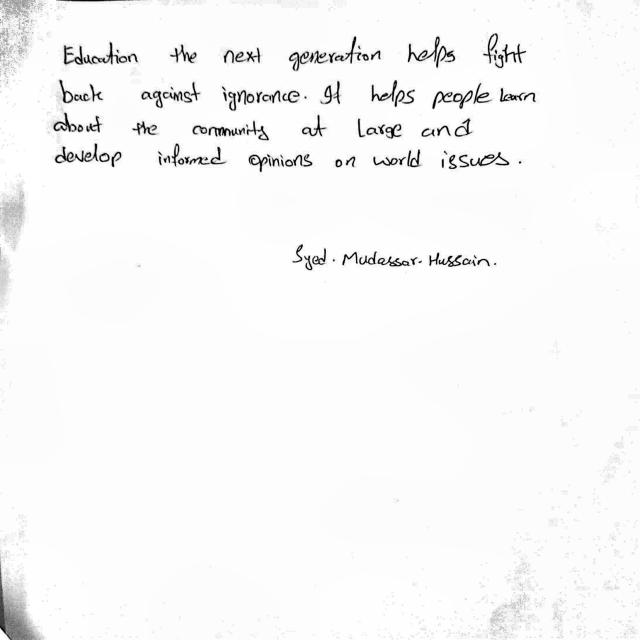 Education the next generation helps fight
back against ignorance. It helps people learn
about the community at large and
develop informed opinions on world issues.
Syed. Mudassar. Hussain.